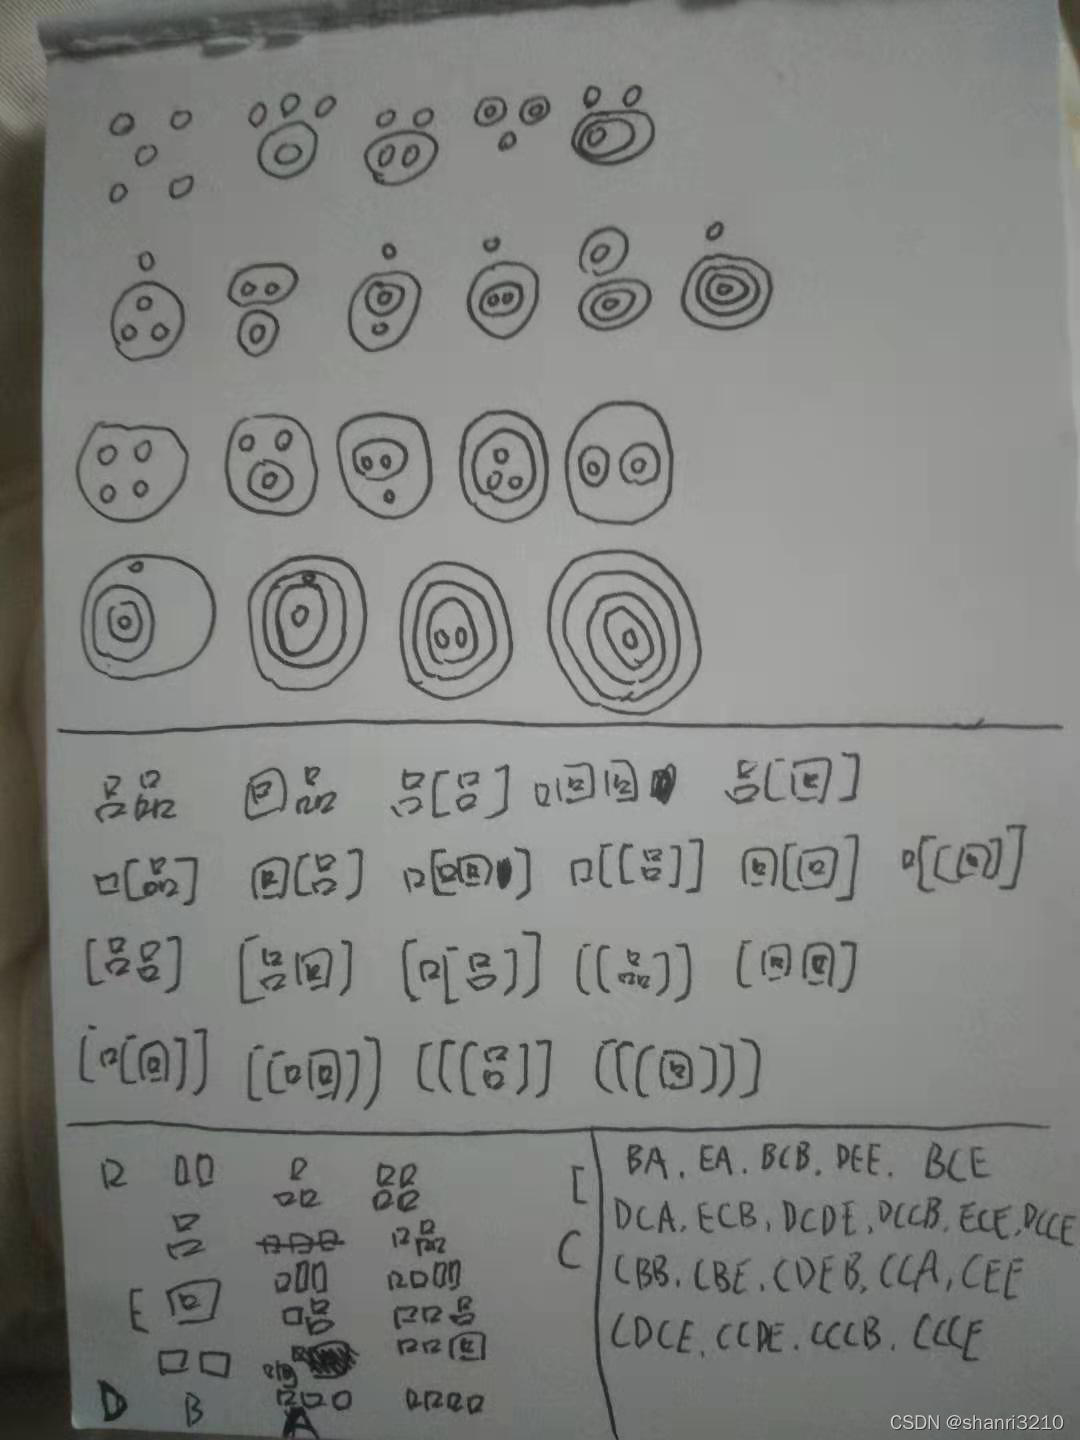 BA, EA, BCB, DEE, BCE
DCA, ECB, DCDE, DCCB, ECE, DCCE
CBB, CBE, CDEB, CCA, CEE
CDCE, CCDE, CCCB, CCCE
E
C
D B A
CSDN @shanri3210